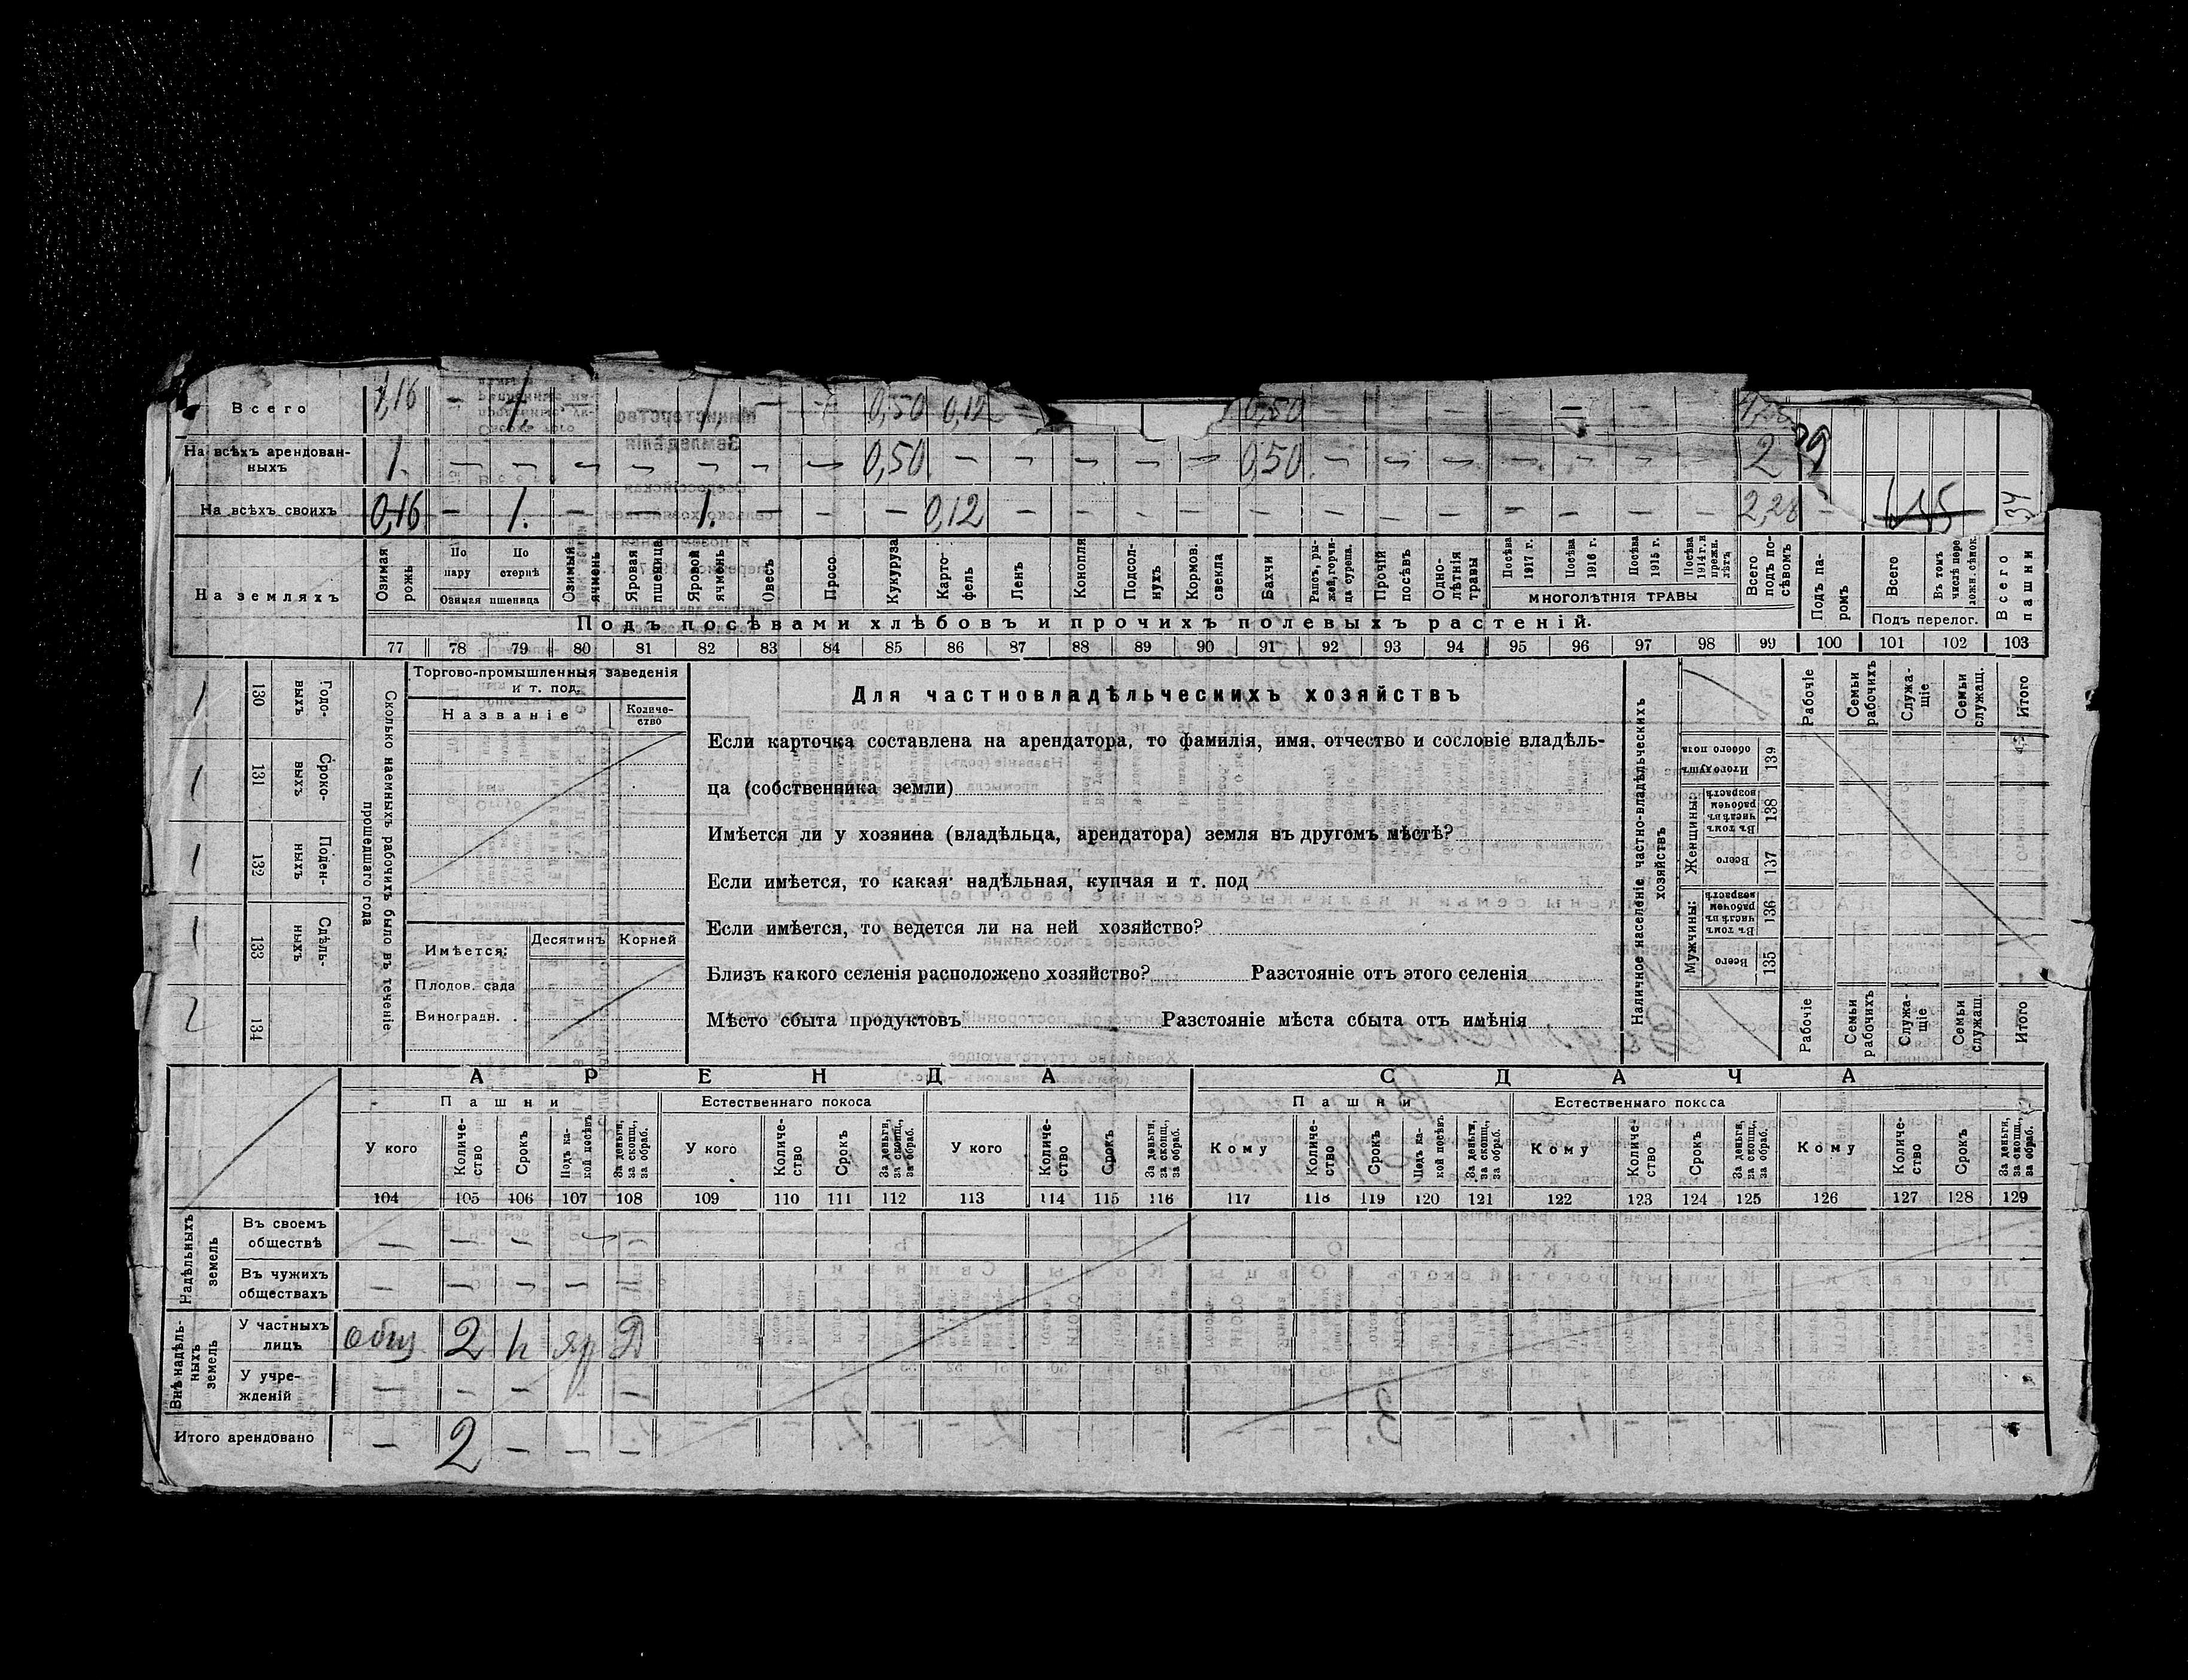 Всего 1,16 — 1. — — 1. — — 0,50 0,12 — 0,50 — — — — — —
На всѣхъ арендован-
ныхъ 1. — — — — — — — 0,50 — — — — — 0,50 — — — — — — — 2
На всѣхъ своихъ 0,16 — 1. — — 1. — — — 0,12 — — — — — — — — — — — — 2,28 —
На земляхъ
Озимая рожь
По пару
По стернѣ
Озимая пшеница
Озимый ячмень
Яровая пшеница
Яровой ячмень
Овесъ
Просо
Кукуруза
Карто-
фель
Ленъ
Конопля
Подсол-
нухъ
Кормов.
свекла
Бахчи
Рапсъ, ры-
жей, горчи-
ца сурепа.
Прочій
посѣвъ
Одно-
лѣтнія
травы
Посѣва
1917 г.
Посѣва
1916 г.
Посѣва
1915 г.
Посѣва
1914 г. и
прежн.
лѣтъ
МНОГОЛѢТНІЯ ТРАВЫ
Всего
подъ по-
сѣвомъ
Подъ па-
ромъ
Всего
Въ томъ
числѣ пере
ложн. сѣнок.
Подъ перелог.
Всего
пашни
Подъ посѣвами хлѣбовъ и прочихъ полевыхъ растеній.
77 78 79 80 81 82 83 84 85 86 87 88 89 90 91 92 93 94 95 96 97 98 99 100 101 102 103
1 130 Годо-
выхъ
1 131 Сроко-
выхъ
1 132 Поден-
ныхъ
1 133 Сдѣль-
ныхъ
2 134
Сколько наемныхъ рабочихъ было въ теченіе
прошедшаго года
Торгово-промышленныя заведенія
и т. под.
Названіе
Количе-
ство
Имѣется:
Десятинъ
Корней
Плодов. сада
Виноградн.
Для частновладѣльческихъ хозяйствъ
Если карточка составлена на арендатора, то фамилія, имя, отчество и сословіе владѣль-
ца (собственника земли)
Имѣется ли у хозяина (владѣльца, арендатора) земля въ другомъ мѣстѣ?
Если имѣется, то какая: надѣльная, купчая и т. под
Если имѣется, то ведется ли на ней хозяйство?
Близъ какого селенія расположено хозяйство? Разстояніе отъ этого селенія
Мѣсто сбыта продуктовъ Разстояніе мѣста сбыта отъ имѣнія
Наличное населеніе частно-владѣльческихъ
хозяйствъ
Рабочіе
Семьи
рабочихъ
Служа-
щіе
Семьи
служащ.
Итого
Итого душъ
обоего пола
139
Женщины:
Въ томъ
числѣ въ
рабочемъ
возрастѣ
138
Всего
137
Мужчины:
Въ томъ
числѣ въ
рабочемъ
возрастѣ
136
Всего
135
Рабочіе
Семьи
рабочихъ
Служа-
щіе
Семьи
служащ.
Итого
АРЕНДА
СДАЧА
Пашни
Естественнаго покоса
Пашни
Естественнаго покоса
У кого
Количе-
ство
Срокъ
Подъ ка-
кой посѣвъ
За деньги,
за скопщ.,
за обраб.
У кого
Количе-
ство
Срокъ
За деньги,
за скопщ.,
за обраб.
У кого
Количе-
ство
Срокъ
За деньги,
за скопщ.,
за обраб.
Кому
Количе-
ство
Срокъ
Подъ ка-
кой посѣвъ
За деньги,
за скопщ.,
за обраб.
Кому
Количе-
ство
Срокъ
За деньги,
за скопщ.,
за обраб.
Кому
Количе-
ство
Срокъ
За деньги,
за скопщ.,
за обраб.
104 105 106 107 108 109 110 111 112 113 114 115 116 117 118 119 120 121 122 123 124 125 126 127 128 129
Надѣльныхъ
земель
Въ своемъ
обществѣ — — — — —
Въ чужихъ
обществахъ — — — — —
Внѣ надѣль-
ныхъ
земель
У частныхъ
лицъ общ 2 п яр Д
У учре-
жденій — — — —
Итого арендовано — 2 — — —